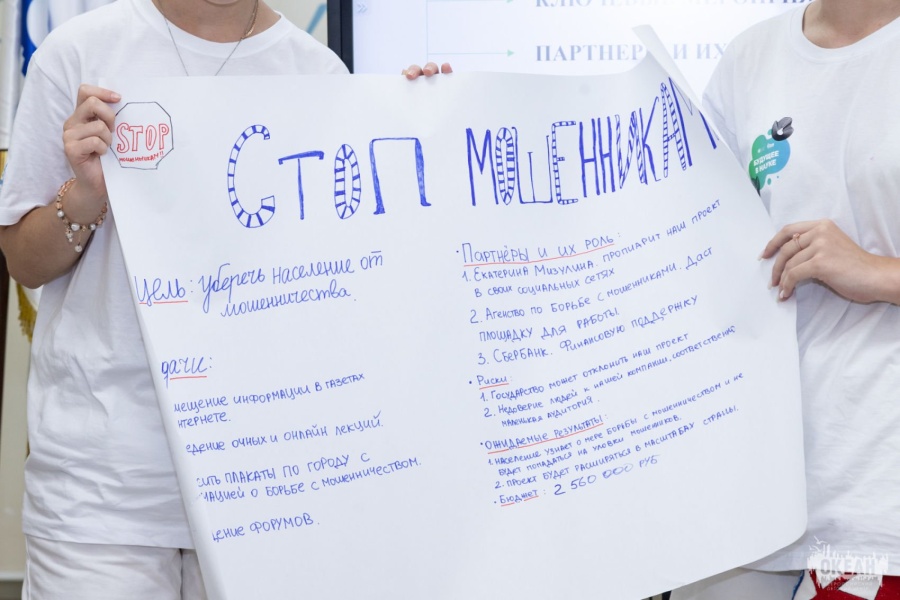 КЛЮЧЕВЫЕ
ПАРТНЕРЫ И ИХ
STOP
мошенникам!!
СТОП МОШЕННИКАМ
Цель: уберечь население от
мошенничества.
дачи:
мещение информации в газетах
нтернете.
едение очных и онлайн лекций
сить плакаты по городу с
мацией о борьбе с мошенничеством.
дение форумов.
• Партнёры и их роль:
1. Екатерина Мизулина. Пропиарит наш проект
в свои социальных сетях
2. Агенство по борьбе с мошенниками. Даст
площадку для работы.
3. Сбербанк. Финансовую поддержку
• Риски:
1. Государство может отклонить наш проект
2. Недоверие людей к нашей компании, соответственно
маленькая аудитория.
• Ожидаемые результаты:
1. Население узнает о мере борьбы с мошенничеством и не
будет попадаться на уловки мошенников.
2. Проект будет расширяться в масштабах страны.
• Бюджет: 2 560 000 руб
БУДУЩЕЕ
В НАУКЕ
ОКЕАН